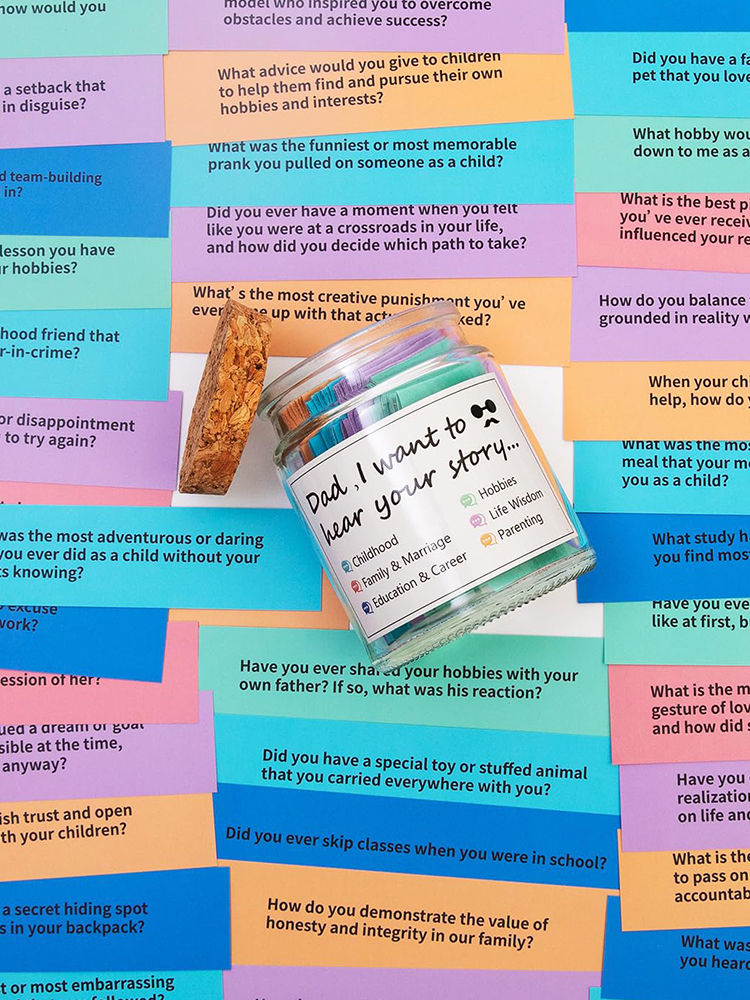 now would you
a setback that
in disguise?
d team-building
in?
lesson you have
r hobbies?
hood friend that
r-in-crime?
or disappointment
to try again?
was the most adventurous or daring
you ever did as a child without your
ts knowing?
excuse
work?
ession of her?
ued a dream or goal
sible at the time,
anyway?
ish trust and open
th your children?
a secret hiding spot
s in your backpack?
t or most embarrassing
followed?
model who inspired you to overcome
obstacles and achieve success?
What advice would you give to children
to help them find and pursue their own
hobbies and interests?
What was the funniest or most memorable
prank you pulled on someone as a child?
Did you ever have a moment when you felt
like you were at a crossroads in your life,
and how did you decide which path to take?
What's the most creative punishment you've
ever me up with that act ked?
Dad, I want to
hear your story...
Childhood
Family & Marriage
Education & Career
Hobbies
Life Wisdom
Parenting
Have you ever shared your hobbies with your
own father? If so, what was his reaction?
Did you have a special toy or stuffed animal
that you carried everywhere with you?
Did you ever skip classes when you were in school?
How do you demonstrate the value of
honesty and integrity in our family?
Did you have a fa
pet that you love
What hobby wou
down to me as a
What is the best pi
you've ever receiv
influenced your re
How do you balance
grounded in reality w
When your chi
help, how do y
What was the mos
meal that your mo
you as a child?
What study h
you find mos
Have you eve
like at first, b
What is the m
gesture of lov
and how did s
Have you
realization
on life and
What is the
to pass on
accountab
What was
you heard